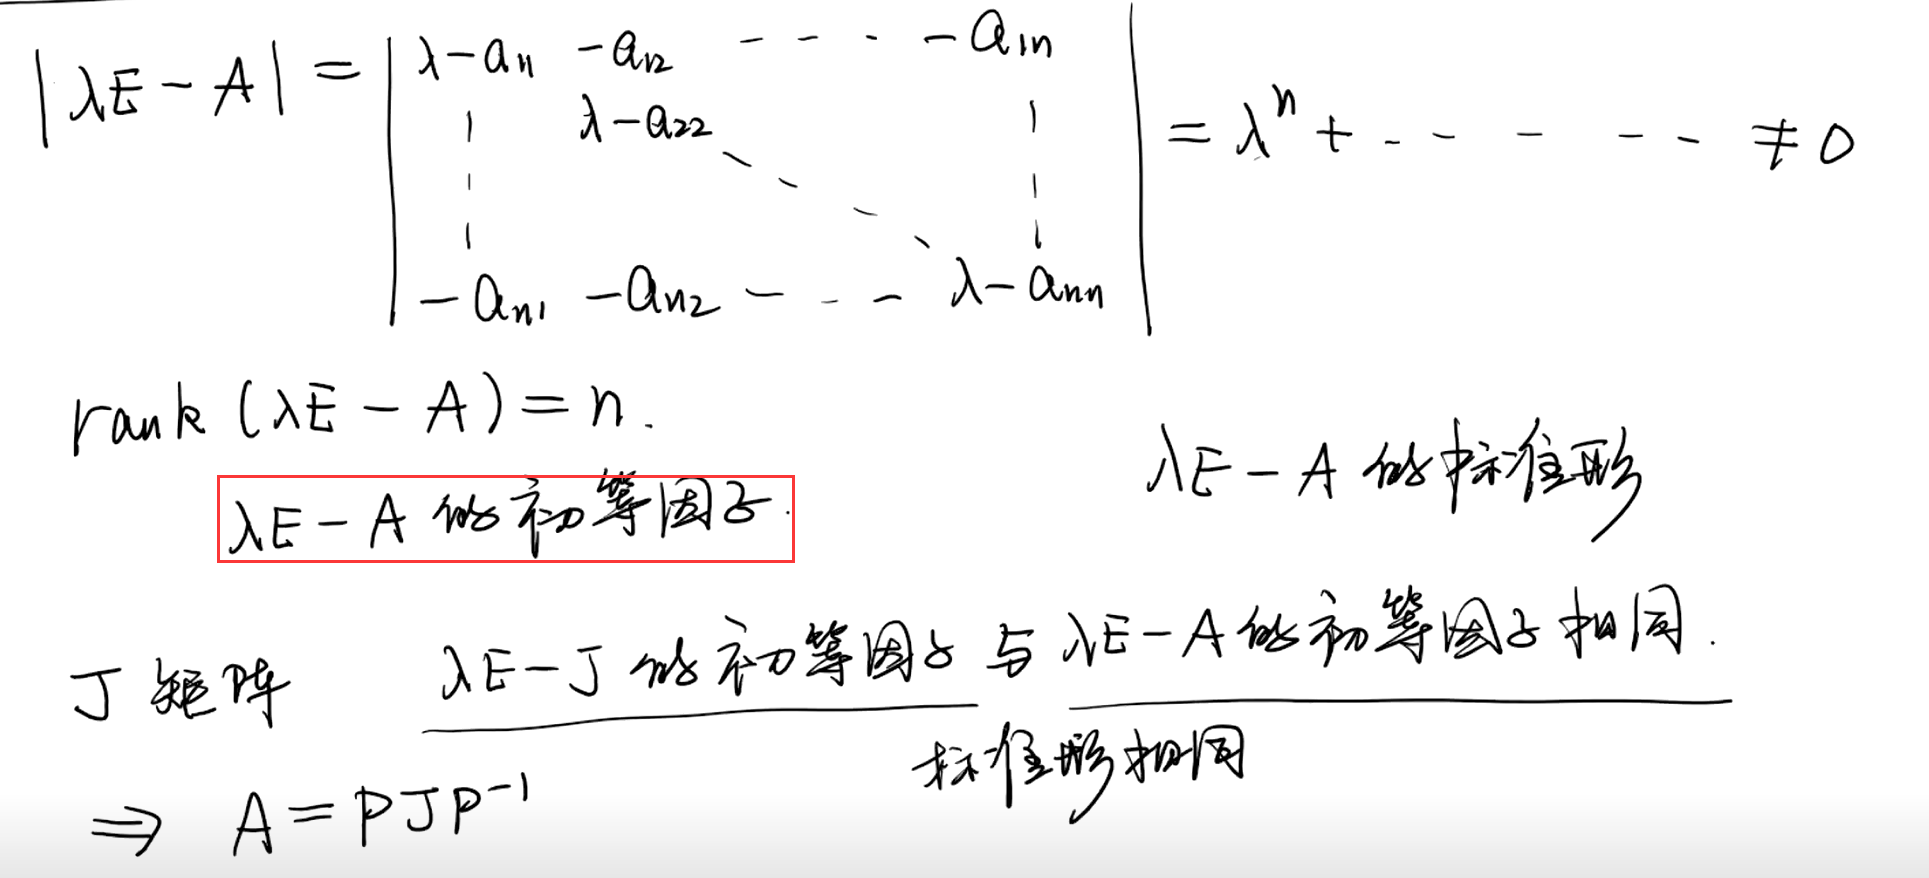 |λE-A| = | λ-a11 -a12 - - - -a1n
λ-a22
-an1 -an2 - - - λ-ann | = λ^n + - - - - ≠0
rank (λE-A)=n.
λE-A 的初等因子. λE-A 的标准形
J 矩阵 λE-J 的初等因子与 λE-A 的初等因子相同.
标准形相同
⇒ A=PJP^-1